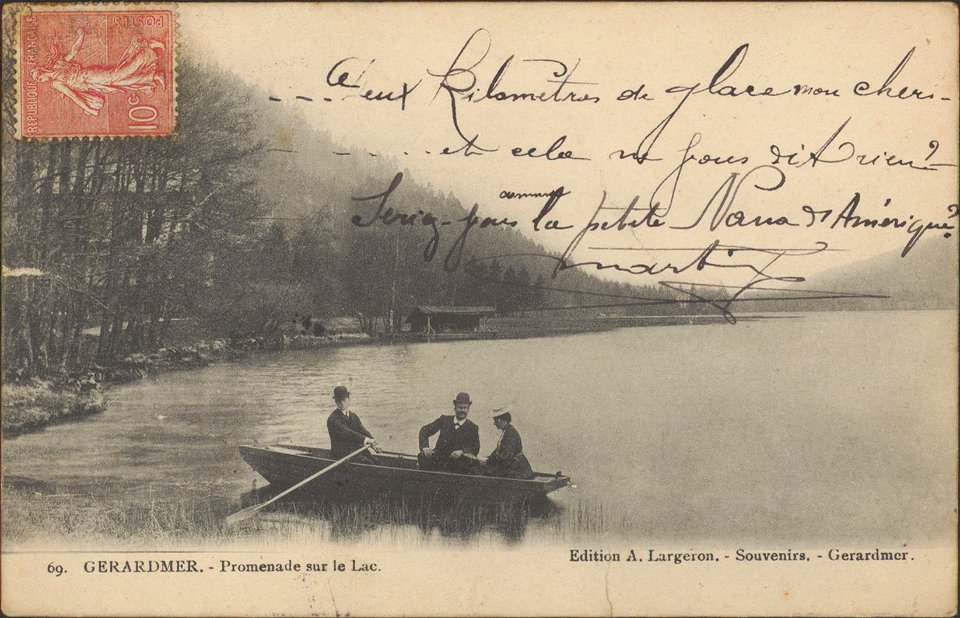 POSTES
REPUBLIQUE FRANÇAISE
10c
Deux Kilomètres de glace mon cher.-
et cela ne vous dit rien?
comme
Seriez-vous la petite Nana d'Amérique?
Martin
69. GERARDMER. - Promenade sur le Lac.
Edition A. Largeron. - Souvenirs. - Gerardmer.